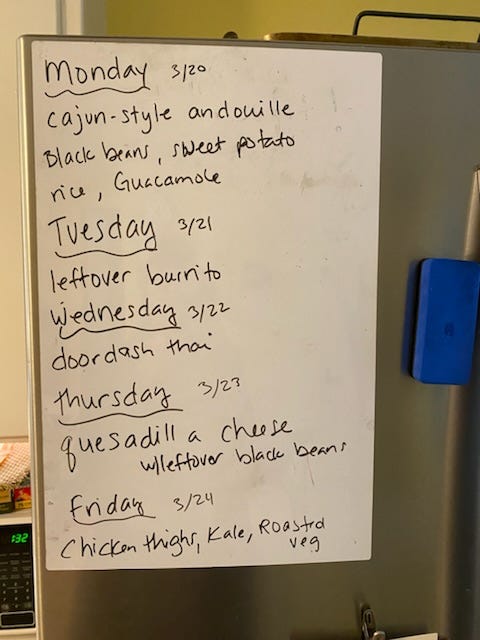 Monday 3/20
cajun-style andouille
Black beans, sweet potato
rice, Guacamole
Tuesday 3/21
leftover burrito
Wednesday 3/22
doordash thai
thursday 3/23
quesadill a cheese
w/leftover black beans
Friday 3/24
Chicken thighs, Kale, Roasted
veg
132